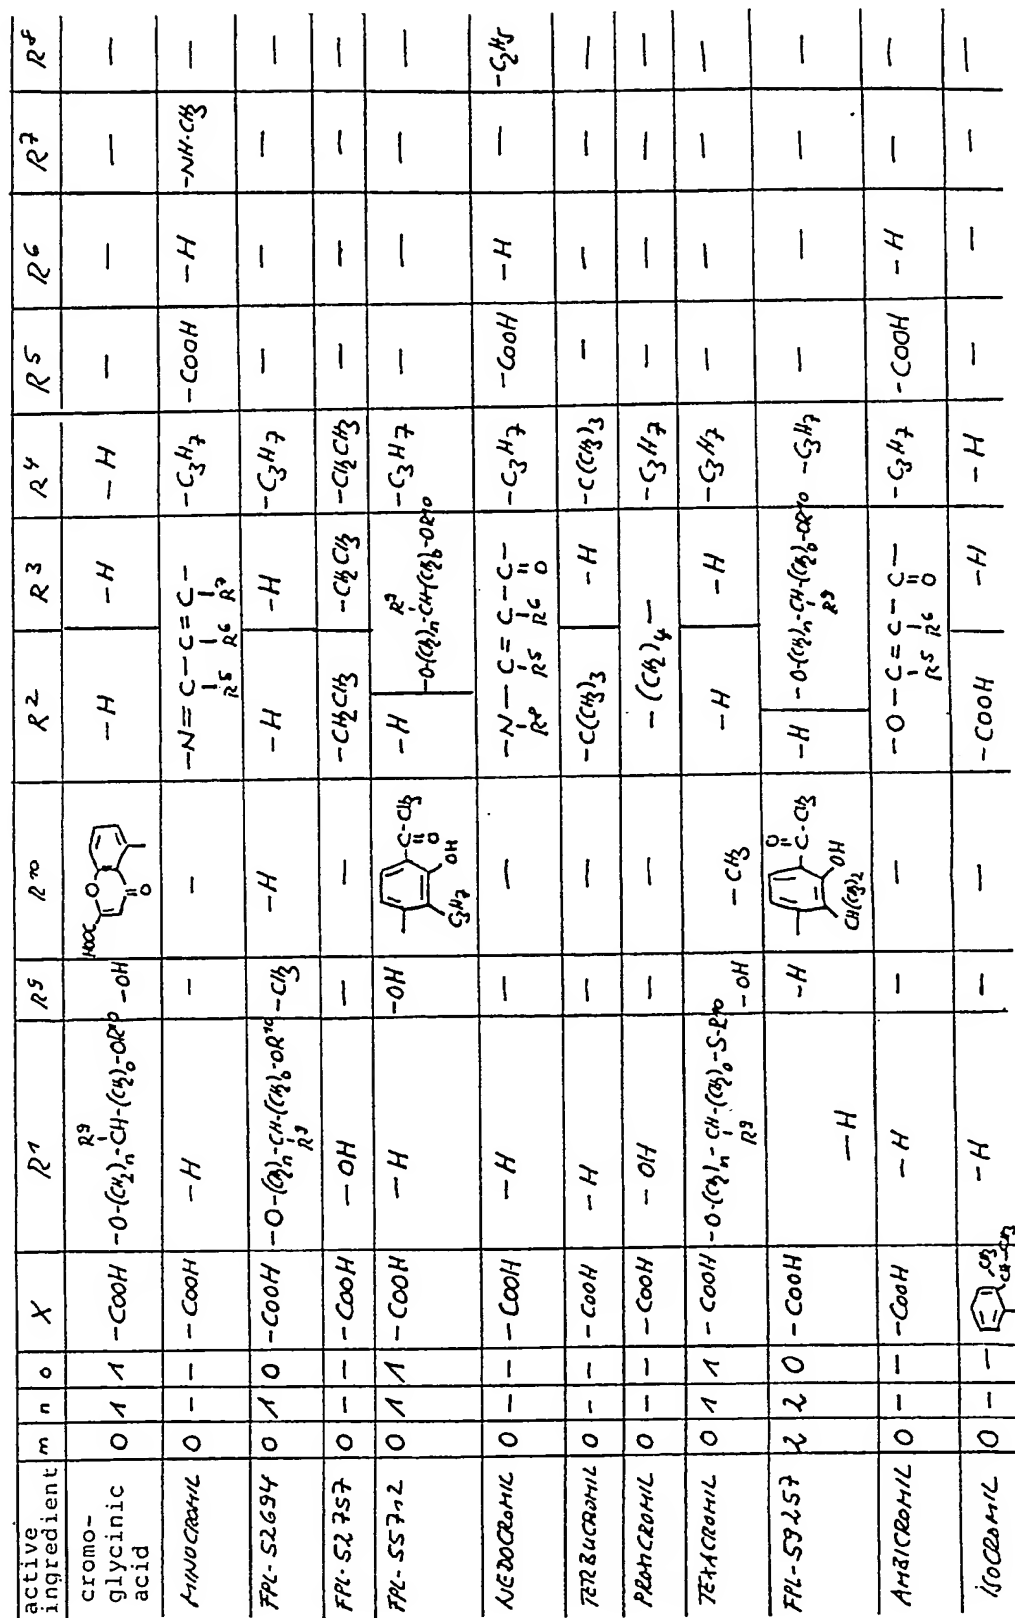 active ingredient | m | n | o | X | R1 | R9 | R10 | R2 | R3 | R4 | R5 | R6 | R7 | R8
cromo-glycinic acid | 0 | 1 | 1 | -COOH | -O-(CH2)n-CH-(CH2)o-OR10 R9 | -OH | HOOC O O | -H | -H | -H | — | — | — | —
MINOCROMIL | 0 | – | – | -COOH | -H | – | – | -N=C-C=C- R5 R6 R7 | -C3H7 | -COOH | -H | -NH-CH3 | —
FPL-52694 | 0 | 1 | 0 | -COOH | -O-(CH2)n-CH-(CH2)o-OR10 R9 | -CH3 | -H | -H | -H | -C3H7 | — | — | — | —
FPL-52757 | 0 | – | – | -COOH | -OH | — | — | -CH2CH3 | -CH2CH3 | -CH2CH3 | — | — | — | —
FPL-55712 | 0 | 1 | 1 | -COOH | -H | -OH | C-CH3 O OH C3H7 | -H | -O-(CH2)n-CH-(CH2)o-OR10 R9 | -C3H7 | — | — | — | —
NEDOCROMIL | 0 | – | – | -COOH | -H | — | — | -N-C=C-C- R8 R5 R6 O | -C3H7 | -COOH | -H | — | -C2H5
TERBUCROMIL | 0 | – | – | -COOH | -H | — | — | -C(CH3)3 | -H | -C(CH3)3 | — | — | — | —
PROXICROMIL | 0 | – | – | -COOH | -OH | — | — | -(CH2)4- | -C3H7 | — | — | — | —
TEXACROMIL | 0 | 1 | 1 | -COOH | -O-(CH2)n-CH-(CH2)o-S-R10 R9 | -OH | -CH3 | -H | -H | -C3H7 | — | — | — | —
FPL-59257 | 2 | 2 | 0 | -COOH | -H | -H | O C-CH3 OH CH(CH3)2 | -H | -O-(CH2)n-CH-(CH2)o-OR10 R9 | -C3H7 | — | — | — | —
AMBICROMIL | 0 | – | – | -COOH | -H | — | — | -O-C=C-C- R5 R6 O | -C3H7 | -COOH | -H | — | —
ISOCROMIL | 0 | – | – | CH3 CH-CH3 | -H | — | — | -COOH | -H | -H | — | — | — | —